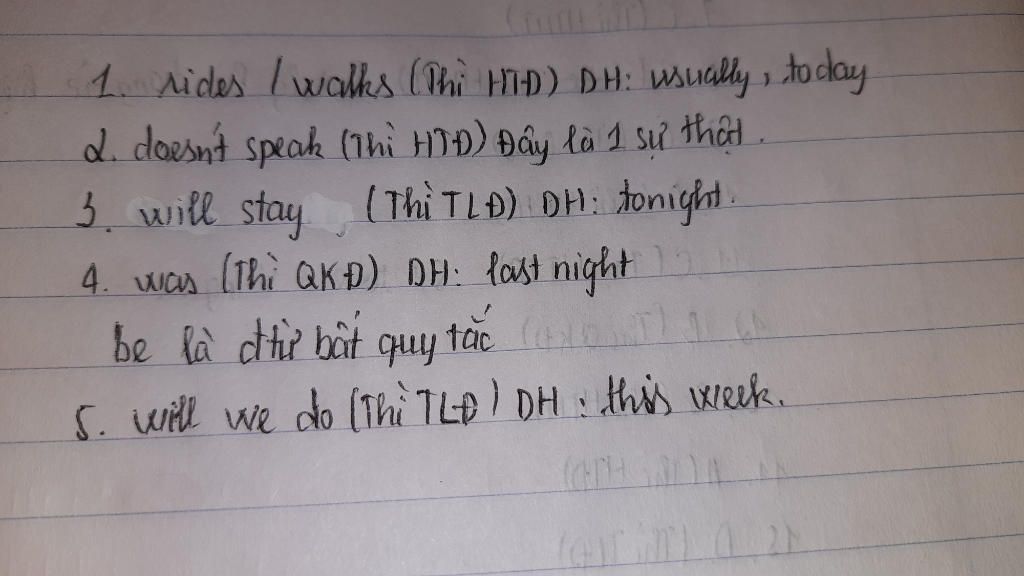 1. rides / walks (Thì HTĐ) DH: usually, today
2. doesn't speak (Thì HTĐ) Đây là 1 sự thật.
3. will stay (Thì TLĐ) DH: tonight.
4. was (Thì QKĐ) DH: last night
be là đtừ bất quy tắc
5. will we do (Thì TLĐ) DH: this week.